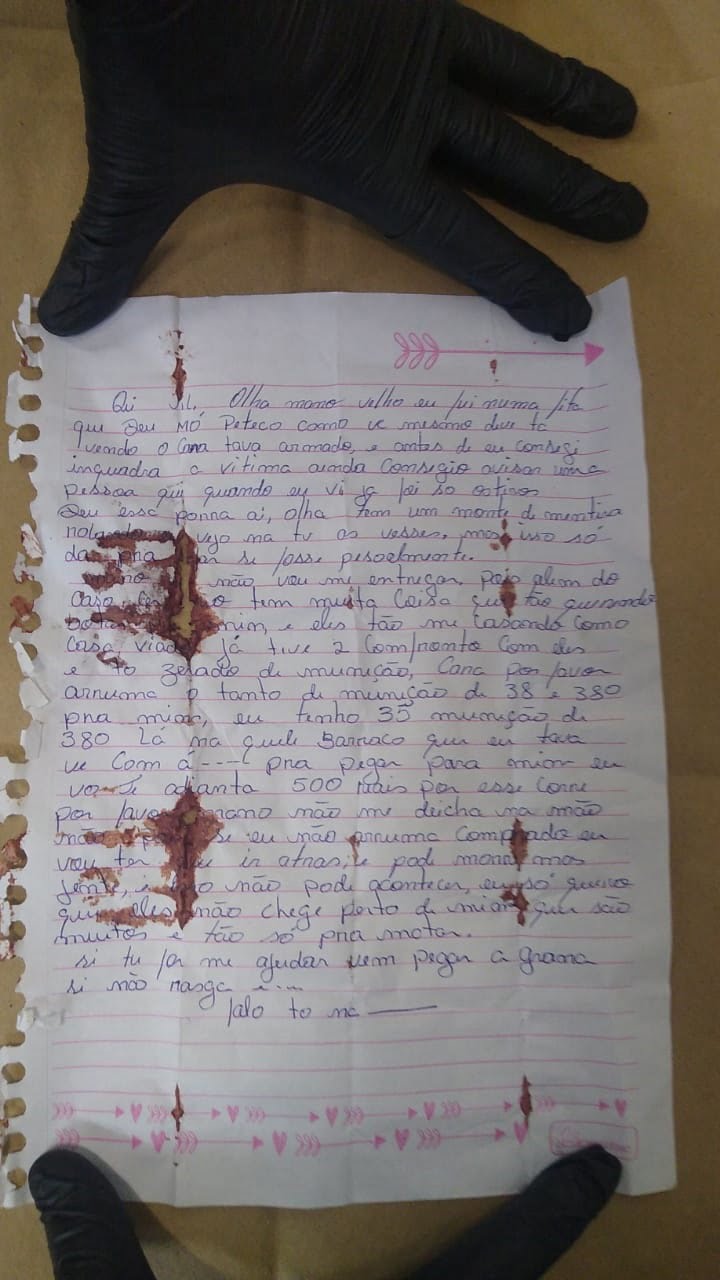 Oi Olha mano velho eu fui numa fita
que Deu MÓ Peteco como vc mesmo deve tá
vendo o Cara tava armado, e antes de eu consegi
inquadra a vitima ainda Consegio avisar uma
pessoa que quando eu vi ja foi so os tiros
Deu essa porra ai, olha tem um monte de mentira
vejo na tv as vesses, mas isso só
da pra se fosse pesoalmente.
mano não vou me entregar, pois alem do
Caso tem muita Coisa que tão querendo
mim, e eles tão me Casando Como
Casa viado já tive 2 Comfronto Com eles
e to zerado de munição, Cara por favor
arruma o tanto de munição de 38 e 380
pra mim, eu tenho 35 munição de
380 Lá na quele Barraco que eu tava
ve Com a ---- pra pegar para mim eu
vo Te adianta 500 mais por esse Corre
por favor mano não me deicha na mão
não se eu não arruma Comprado eu
vou ter que ir atras, e pode morre mas
jente, e isso não pode acontecer, eu só quero
que eles não chege perto de mim que são
muitos e tão só pra matar.
si tu for me ajudar vem pegar a grana
si não rasga
falo to na